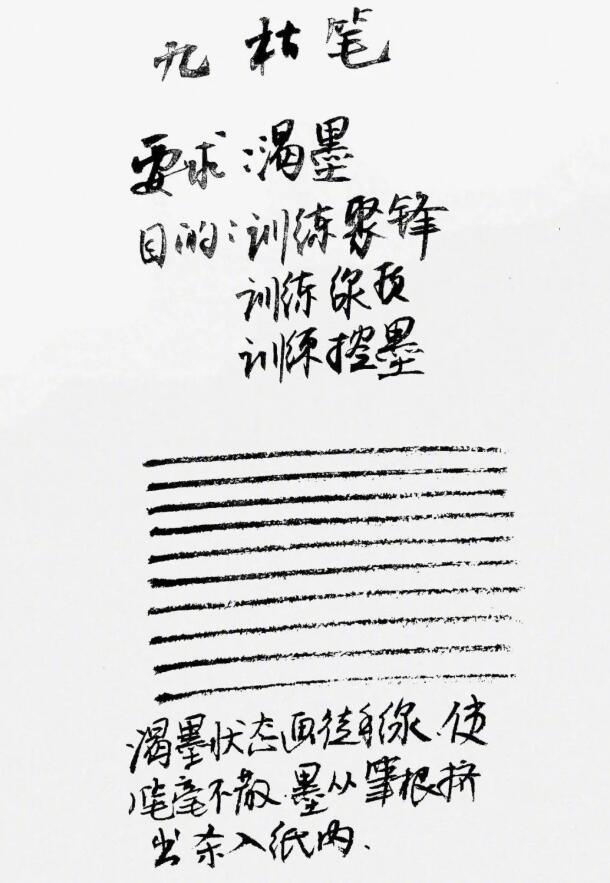 九 枯笔
要求:渴墨
目的:训练聚锋
训练线质
训练控墨
渴墨状态画徒手线.使
笔毫不散.墨从笔根挤
出杀入纸内.